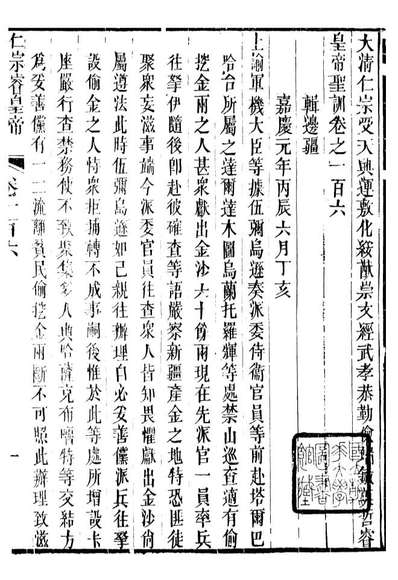 大清仁宗受天興運敷化綏猷崇文經武孝恭勤儉端敏英哲睿
皇帝聖訓卷之一百六
輯邊疆
嘉慶元年丙辰六月丁亥
上諭軍機大臣等據伍彌烏遜奏派委侍衛官員等前赴塔爾巴
哈台所屬之達爾達木圖烏蘭托羅輝等處禁山巡查適有偷
挖金兩之人甚衆獻出金沙六十餘兩現在先派官一員率兵
往拏伊隨後卽赴彼確查等語嚴察新疆產金之地特恐匪徒
聚衆妄滋事端今派委官員往查衆人皆知畏懼獻出金沙尙
屬遵法此時伍彌烏遜如已親往辦理自必妥善儻派兵往拏
設偷金之人恃衆拒捕轉不成事嗣後惟於此等處所增設卡
座嚴行查禁務使不致聚集多人與哈薩克布嚕特等交結方
爲妥善儻有一二流離貧民偷挖金兩斷不可照此辦理致滋
仁宗睿皇帝
卷一百六
一